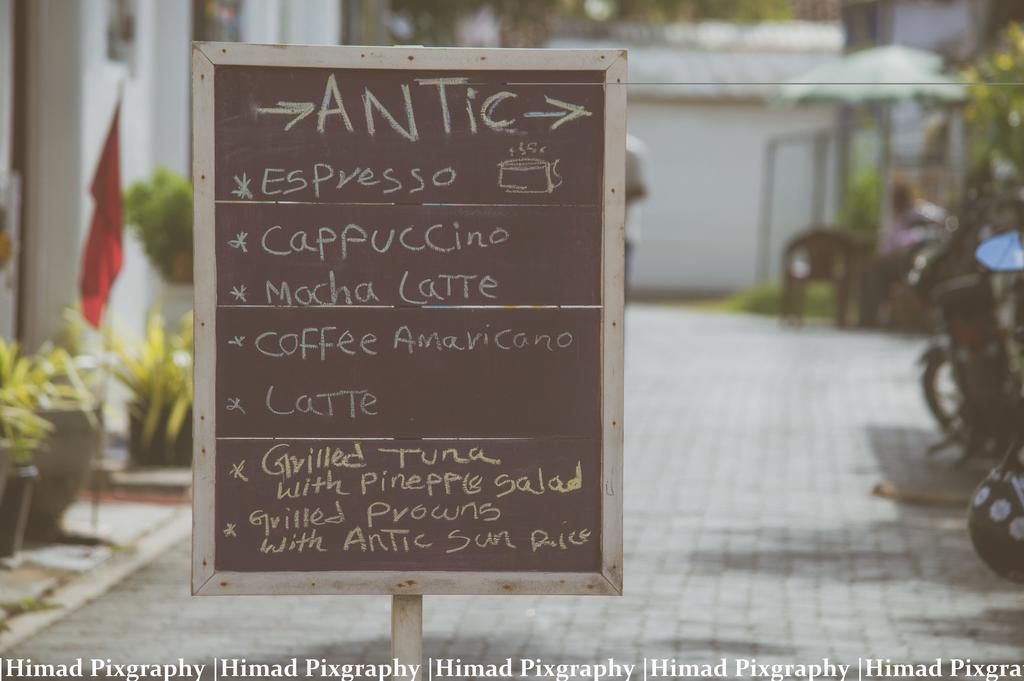 →ANTiC→
* ESPresso
* CAPPUCCino
* Mocha LATTE
* COFFEE Amaricano
* LATTE
* Grilled Tuna
with PinePPle Salad
* Grilled Prowns
with ANTiC Sun Rice
|Himad Pixgraphy |Himad Pixgraphy |Himad Pixgraphy |Himad Pixgraphy |Himad Pixgra